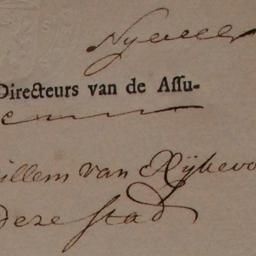 Directeurs van de Assu-
illem van Rijkevo
deze stad